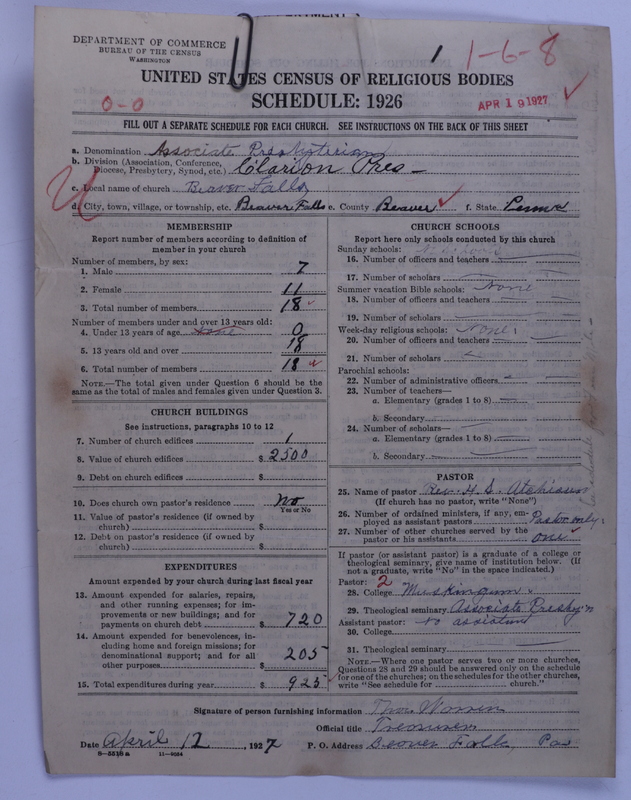 DEPARTMENT OF COMMERCE
BUREAU OF THE CENSUS
WASHINGTON
1
1-6-8
UNITED STATES CENSUS OF RELIGIOUS BODIES
SCHEDULE: 1926
0-0
APR 19 1927
FILL OUT A SEPARATE SCHEDULE FOR EACH CHURCH. SEE INSTRUCTIONS ON THE BACK OF THIS SHEET
a. Denomination Associate Presbyterian
b. Division (Association, Conference, Diocese, Presbytery, Synod, etc.) Clarion Pres-
c. Local name of church Beaver Falls
d. City, town, village, or township, etc. Beaver Falls e. County Beaver f. State Penna
MEMBERSHIP
Report number of members according to definition of
member in your church
Number of members, by sex:
1. Male 7
2. Female 11
3. Total number of members 18
Number of members under and over 13 years old:
4. Under 13 years of age 0
5. 13 years old and over 18
6. Total number of members 18
NOTE.—The total given under Question 6 should be the
same as the total of males and females given under Question 3.
CHURCH BUILDINGS
See instructions, paragraphs 10 to 12
7. Number of church edifices 1
8. Value of church edifices $ 2500
9. Debt on church edifices $
10. Does church own pastor's residence No
Yes or No
11. Value of pastor's residence (if owned by
church) $
12. Debt on pastor's residence (if owned by
church) $
EXPENDITURES
Amount expended by your church during last fiscal year
13. Amount expended for salaries, repairs,
and other running expenses; for im-
provements or new buildings; and for
payments on church debt $ 720
14. Amount expended for benevolences, in-
cluding home and foreign missions; for
denominational support; and for all
other purposes $ 205
15. Total expenditures during year $ 925
CHURCH SCHOOLS
Report here only schools conducted by this church
Sunday schools:
16. Number of officers and teachers
17. Number of scholars
Summer vacation Bible schools: None
18. Number of officers and teachers
19. Number of scholars
Week-day religious schools: None
20. Number of officers and teachers
21. Number of scholars
Parochial schools:
22. Number of administrative officers
23. Number of teachers—
a. Elementary (grades 1 to 8)
b. Secondary
24. Number of scholars—
a. Elementary (grades 1 to 8)
b. Secondary
PASTOR
25. Name of pastor Rev. H. S. Atchison
(If church has no pastor, write "None")
26. Number of ordained ministers, if any, em-
ployed as assistant pastors Pastor only
27. Number of other churches served by the
pastor or his assistants one
If pastor (or assistant pastor) is a graduate of a college or
theological seminary, give name of institution below. (If
not a graduate, write "No" in the space indicated.)
Pastor: 2
28. College Muskingum
29. Theological seminary Associate Presbyn
Assistant pastor: No assistant
30. College
31. Theological seminary
NOTE.—Where one pastor serves two or more churches,
Questions 28 and 29 should be answered only on the schedule
for one of the churches; on the schedules for the other churches,
write "See schedule for church."
Signature of person furnishing information
Official title Treasurer
Date April 12, 1927 P. O. Address Beaver Falls, Pa
8-551a 11-9084